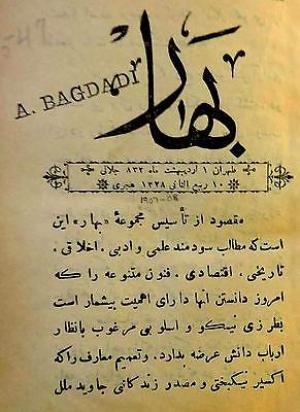 بهار
A. BAGDADI
طهران ١ اردیبهشت ماه ٨٣٢ جلالی
١٠ ربیع الثانی ١٣٢٨ هجری
مقصود از تأسیس مجموعهٔ «بهار» این
است که مطالب سودمند علمی و ادبی . اخلاقی .
تاریخی . اقتصادی . فنون متنوعه را که
امروز دانستن آنها دارای اهمیت بیشمار است
بطرزی نیکو و اسلوبی مرغوب بانظار
ارباب دانش عرضه بدارد . وتعمیم معارف راکه
اکسیر نیکبختی و مصدر زندگانی جاوید ملل